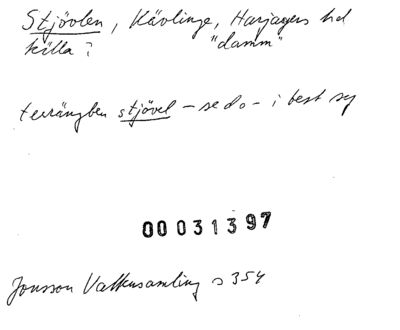 Stjövlen, Kävlinge, Harjagers hd
källa? "damm"
terrängben stjövel - se do - i best sg
00031397
Jonsson Vattensamling s 354